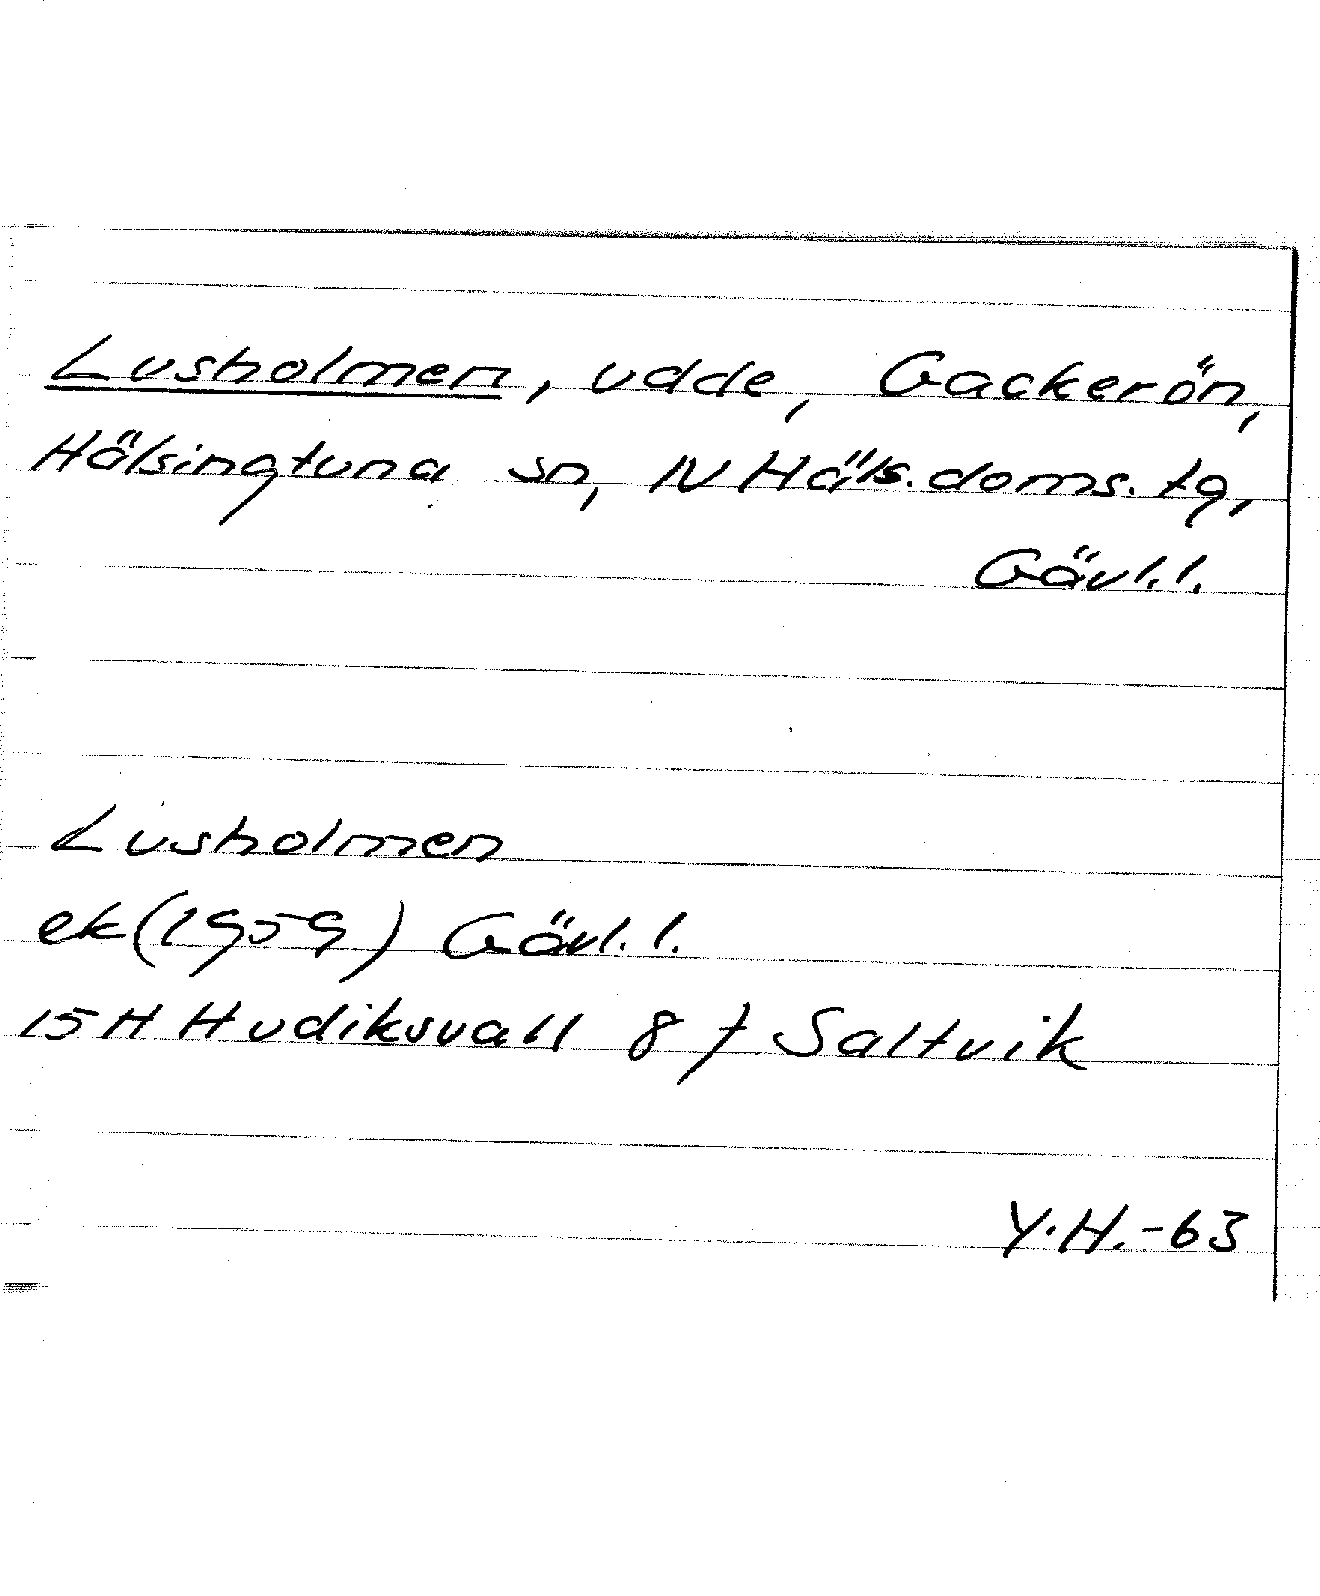 Lusholmen, udde, Gackerön,
Hälsingtuna sn, N Häls. doms. tg,
Gävl. l.
Lusholmen
ek (1959) Gävl. l.
15 H Hudiksvall 8 f Saltvik
Y. H. -63